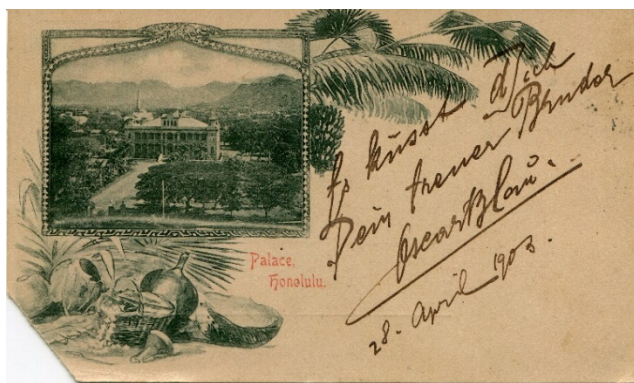 Palace,
Honolulu.
Es küsst Dich
Dein treuer Bruder
Oscar Blau.
28. April 1903.